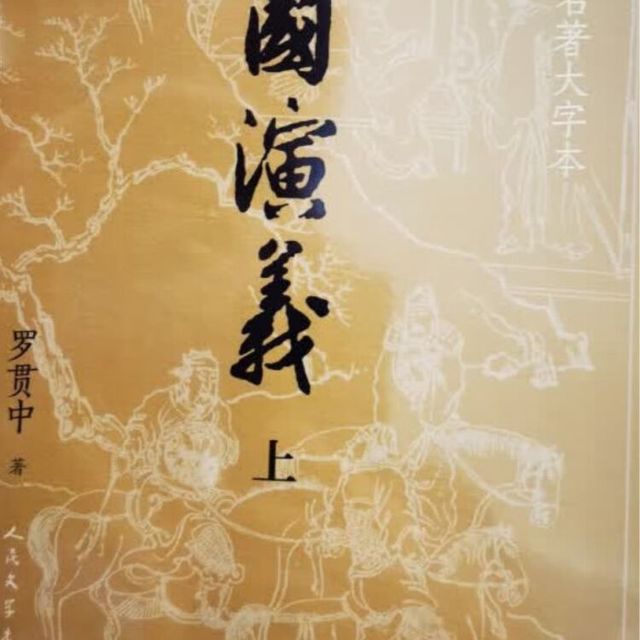 名著大字本
國演義
上
罗贯中 著
人民文学